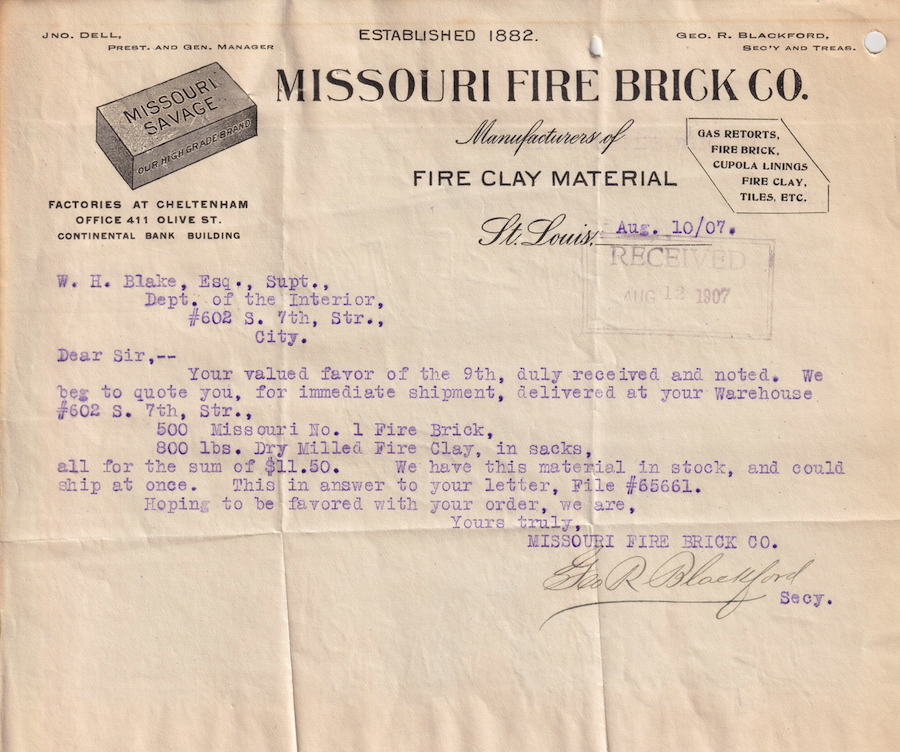 JNO. DELL,
PREST. AND GEN. MANAGER
ESTABLISHED 1882.
GEO. R. BLACKFORD,
SEC'Y AND TREAS.
MISSOURI SAVAGE
OUR HIGH GRADE BRAND
MISSOURI FIRE BRICK CO.
Manufacturers of
FIRE CLAY MATERIAL
GAS RETORTS,
FIRE BRICK,
CUPOLA LININGS
FIRE CLAY,
TILES, ETC.
FACTORIES AT CHELTENHAM
OFFICE 411 OLIVE ST.
CONTINENTAL BANK BUILDING
St. Louis, Aug. 10/07.
RECEIVED
AUG 12 1907
W. H. Blake, Esq., Supt.,
Dept. of the Interior,
#602 S. 7th, Str.,
City.
Dear Sir,--
Your valued favor of the 9th, duly received and noted. We
beg to quote you, for immediate shipment, delivered at your Warehouse
#602 S. 7th, Str.,
500 Missouri No. 1 Fire Brick,
800 lbs. Dry Milled Fire Clay, in sacks,
all for the sum of $11.50. We have this material in stock, and could
ship at once. This in answer to your letter, File #65661.
Hoping to be favored with your order, we are,
Yours truly,
MISSOURI FIRE BRICK CO.
Geo R Blackford
Secy.